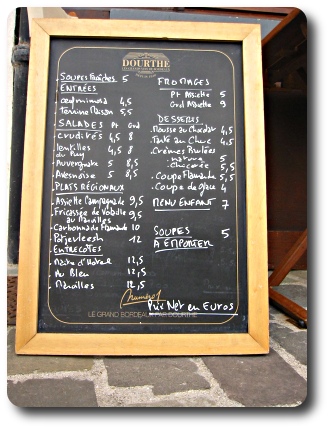 DOURTHE
SOUPES Fraîches 5
ENTRÉES
œuf mimosa 4,5
Terrine Maison 5,5
SALADES Pt Grd
crudités 4,5 8
lentilles du Puy 4,5 8
Auvergnate 5 8,5
Avesnoise 5 8,5
PLATS RÉGIONAUX
Assiette Campagnarde 9,5
Fricassée de Volaille au Maroilles 9,5
Carbonnade Flamande 10
Potjevleesh 12
ENTRECOTES
Maitre d'Hotel 12,5
Au Bleu 12,5
Maroilles 12,5
FROMAGES
Pt Assiette 5
Grd Assiette 9
DESSERTS
Mousse au Chocolat 4,5
Tarte au Chuc 4,5
Crèmes Brulées
nature 5
chicorée 5,5
Coupe Flamande 5,5
Coupe de glace 4
MENU ENFANT 7
SOUPES A EMPORTER 5
Numéro 1
Prix Net en Euros
LE GRAND BORDEAUX PAR DOURTHE